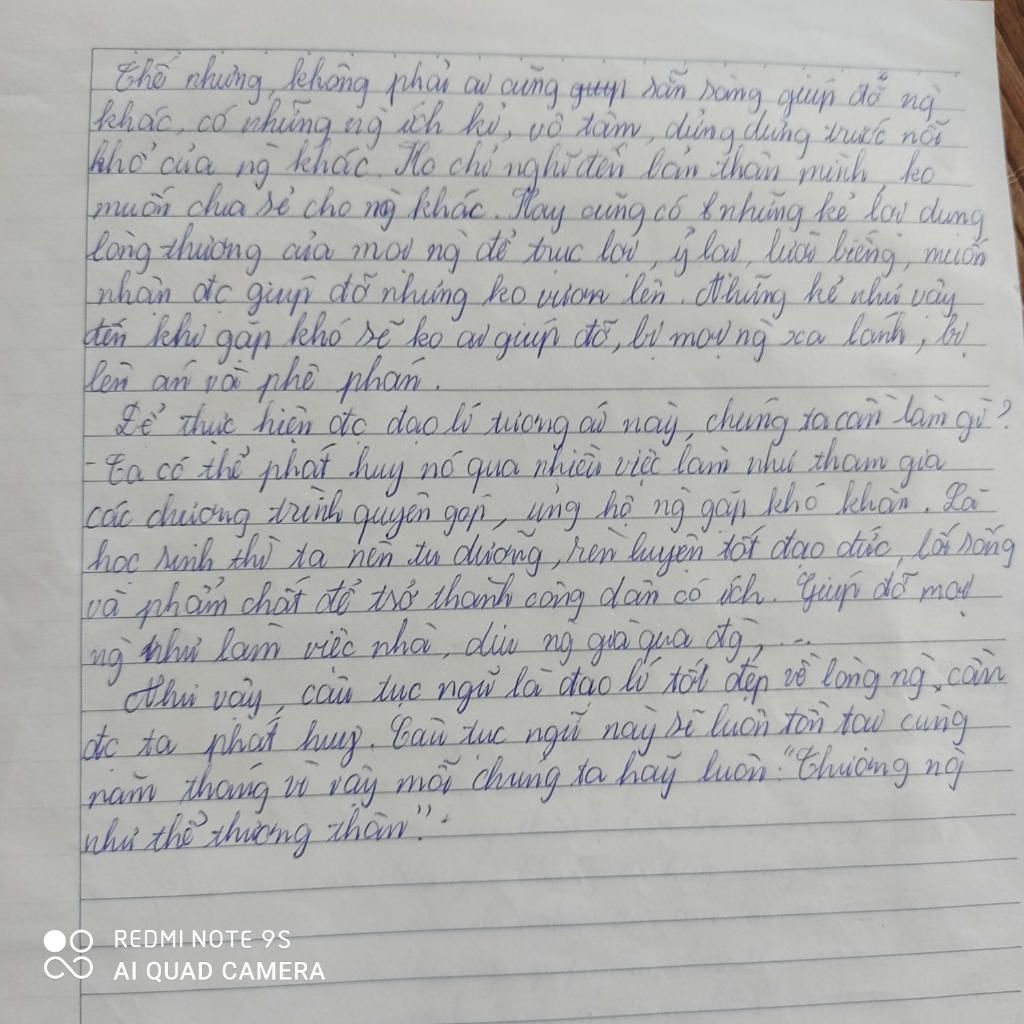 Thế nhưng, không phải ai cũng sẵn sàng giúp đỡ ng
khác, có những ng ích kỉ, vô tâm, dửng dưng trước nỗi
khổ của ng khác. Họ chỉ nghĩ đến bản thân mình, ko
muốn chia sẻ cho ng khác. Hay cũng có những kẻ lợi dụng
lòng thương của mọi ng để trục lợi, ỷ lại, lười biếng, muốn
nhận đc giúp đỡ nhưng ko vươn lên. Những kẻ như vậy
đến khi gặp khó sẽ ko ai giúp đỡ, bị mọi ng xa lánh, bị
lên án và phê phán.
Để thực hiện đc đạo lí tương ái này, chúng ta cần làm gì?
- Ta có thể phát huy nó qua nhiều việc làm như tham gia
các chương trình quyên góp, ủng hộ ng gặp khó khăn. Là
học sinh thì ta nên tu dưỡng, rèn luyện tốt đạo đức, lối sống
và phẩm chất để trở thành công dân có ích. Giúp đỡ mọi
ng như làm việc nhà, dìu ng già qua đg, ...
Như vậy, câu tục ngữ là đạo lí tốt đẹp về lòng ng, cần
đc ta phát huy. Câu tục ngữ này sẽ luôn tồn tại cùng
năm tháng vì vậy mỗi chúng ta hãy luôn: "Thương ng
như thể thương thân".
REDMI NOTE 9S
AI QUAD CAMERA